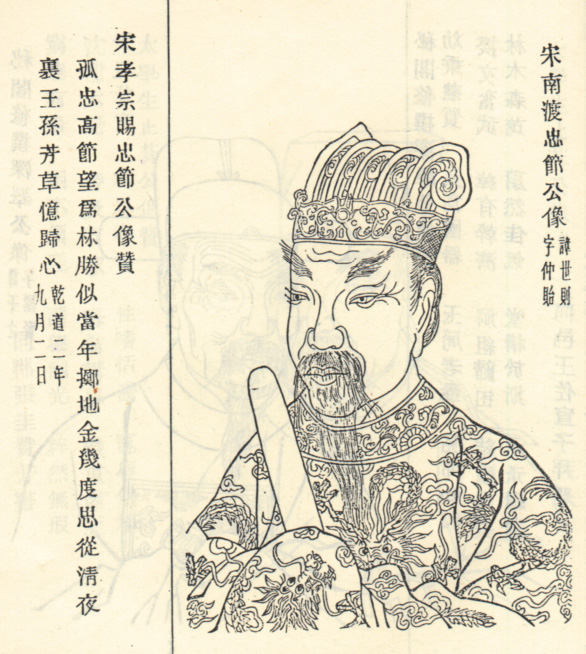 宋南渡忠節公像
諱世則
字仲貽
宋孝宗賜忠節公像贊
孤忠高節望爲林勝似當年擲地金幾度思從清夜
裏王孫芳草憶歸心
乾道三年
九月二日